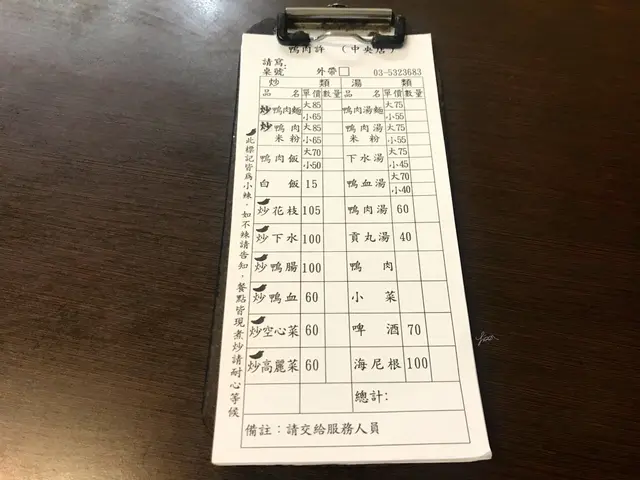 鴨肉許 (中央店)
請寫
桌號: 外帶□ 03-5323683
炒 類 湯 類
品 名 單價 數量 品 名 單價 數量
炒鴨肉麵 大85 小65 鴨肉湯麵 大75 小55
炒鴨肉米粉 大85 小65 鴨肉湯米粉 大75 小55
鴨肉飯 大70 小50 下水湯 大75 小45
白飯 15 鴨血湯 大70 小40
炒花枝 105 鴨肉湯 60
炒下水 100 貢丸湯 40
炒鴨腸 100 鴨肉
炒鴨血 60 小菜
炒空心菜 60 啤酒 70
炒高麗菜 60 海尼根 100
總計:
備註:請交給服務人員
此標記皆為小辣,如不辣請告知,餐點皆現煮炒請耐心等候